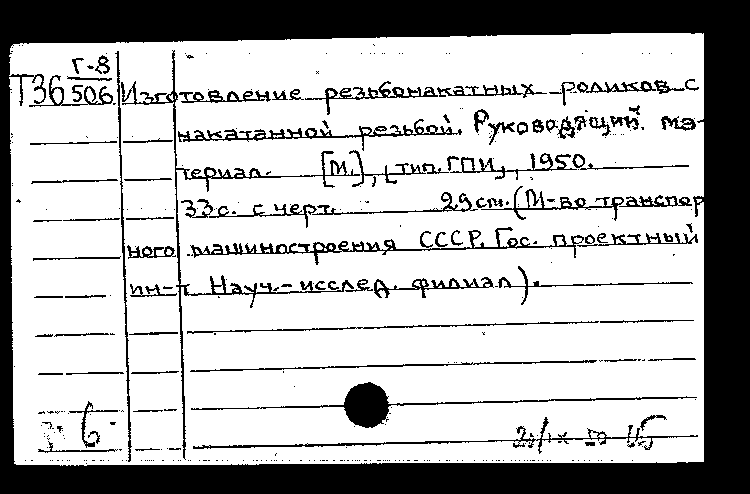 Г-8
Т36 506 Изготовление резьбонакатных роликов с
накатанной резьбой. Руководящий. ма-
териал. [М.], [тип. ГПИ], 1950.
33с. с черт. 29см. (М-во транспорт
ного машиностроения СССР. Гос. проектный
ин-т Науч.-исслед. филиал).
6